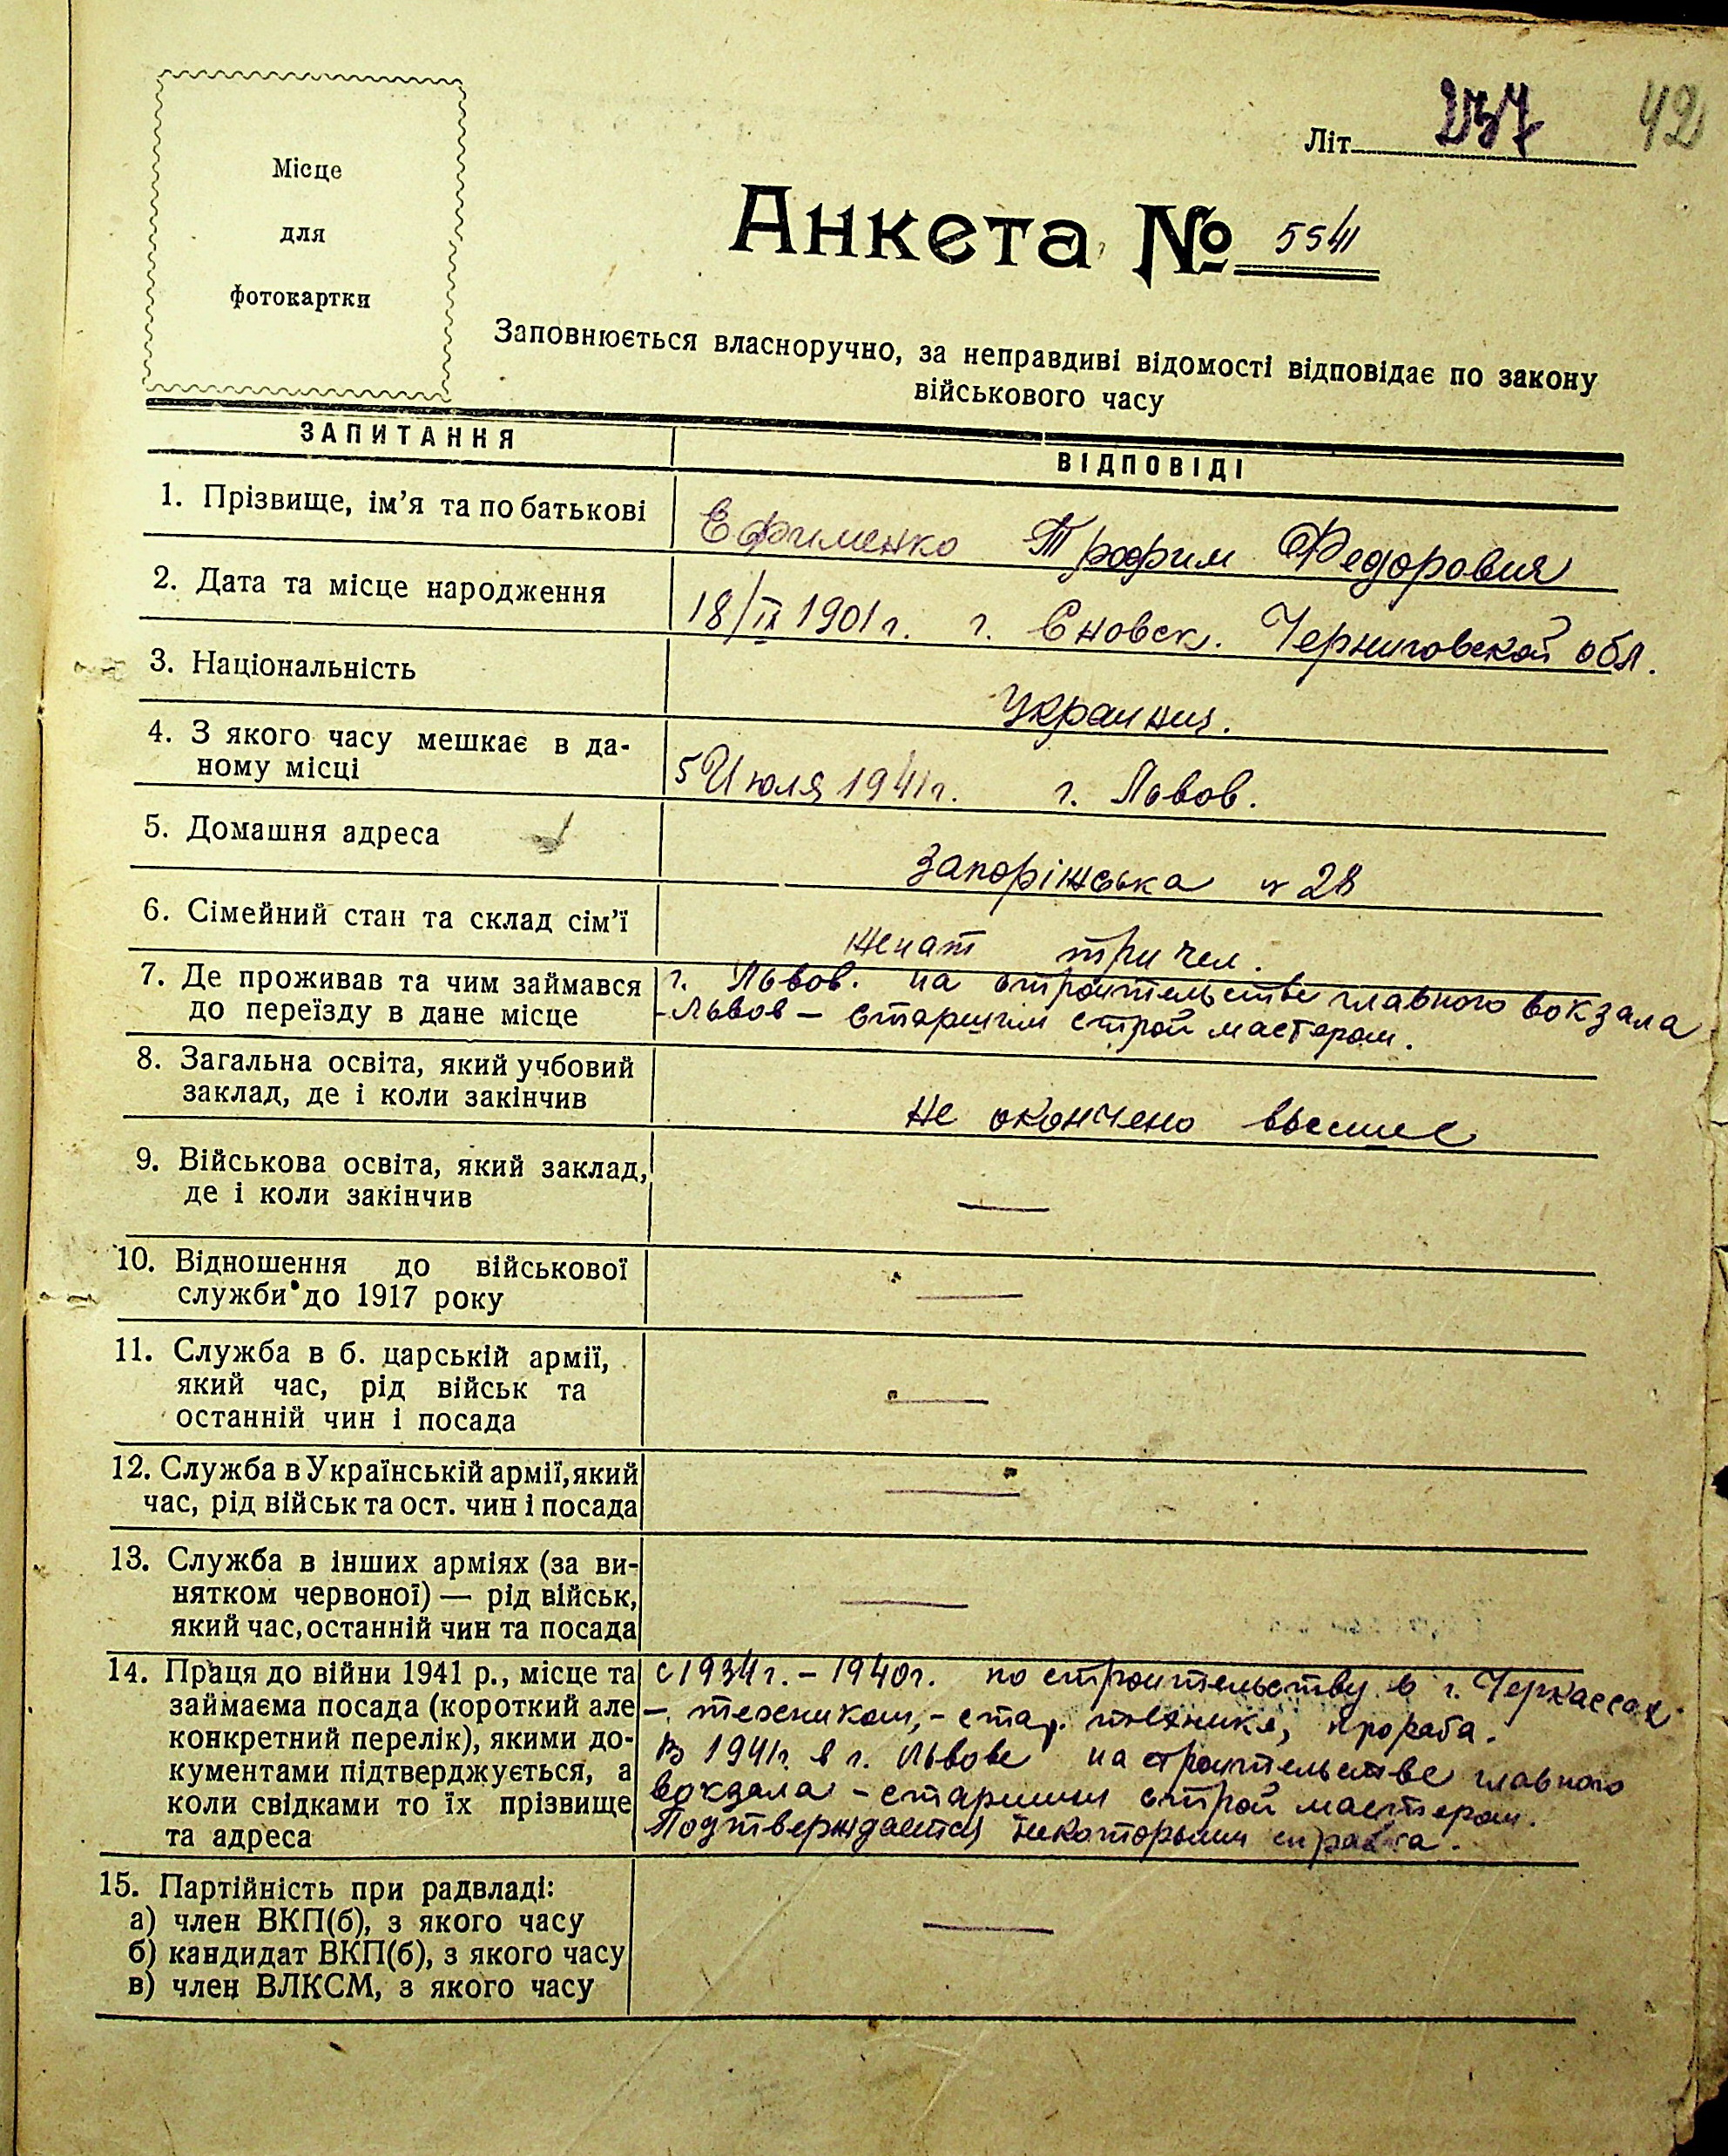 Місце
для
фотокартки
Літ. 237 42
Анкета № 5541
Заповнюється власноручно, за неправдиві відомості відповідає по закону
військового часу
ЗАПИТАННЯ
ВІДПОВІДІ
1. Прізвище, ім'я та по батькові
Ефименко Трофим Федорович
2. Дата та місце народження
18/IX 1901 г. г. Сновск. Черниговской обл.
3. Національність
Украинец.
4. З якого часу мешкає в да-
ному місці
5 Июля 1941 г. г. Львов.
5. Домашня адреса
Запоріжська № 28
6. Сімейний стан та склад сім'ї
женат три чел.
7. Де проживав та чим займався
до переїзду в дане місце
г. Львов. на строительстве главного вокзала
-Львов — старшим строй мастером.
8. Загальна освіта, який учбовий
заклад, де і коли закінчив
не окончено высшее
9. Військова освіта, який заклад,
де і коли закінчив
—
10. Відношення до військової
служби до 1917 року
—
11. Служба в б. царській армії,
який час, рід військ та
останній чин і посада
—
12. Служба в Українській армії, який
час, рід військ та ост. чин і посада
—
13. Служба в інших арміях (за ви-
нятком червоної) — рід військ,
який час, останній чин та посада
—
14. Праця до війни 1941 р., місце та
займаєма посада (короткий але
конкретний перелік), якими до-
кументами підтверджується, а
коли свідками то їх прізвище
та адреса
с 1934 г. – 1940 г. по строительству в г. Черкассах
— техником, – стар. техника, прораба.
В 1941 г. в г. Львове на строительстве главного
вокзала – старшим строй мастером.
Подтверждается некоторыми
15. Партійність при радвладі:
а) член ВКП(б), з якого часу
б) кандидат ВКП(б), з якого часу
в) член ВЛКСМ, з якого часу
—